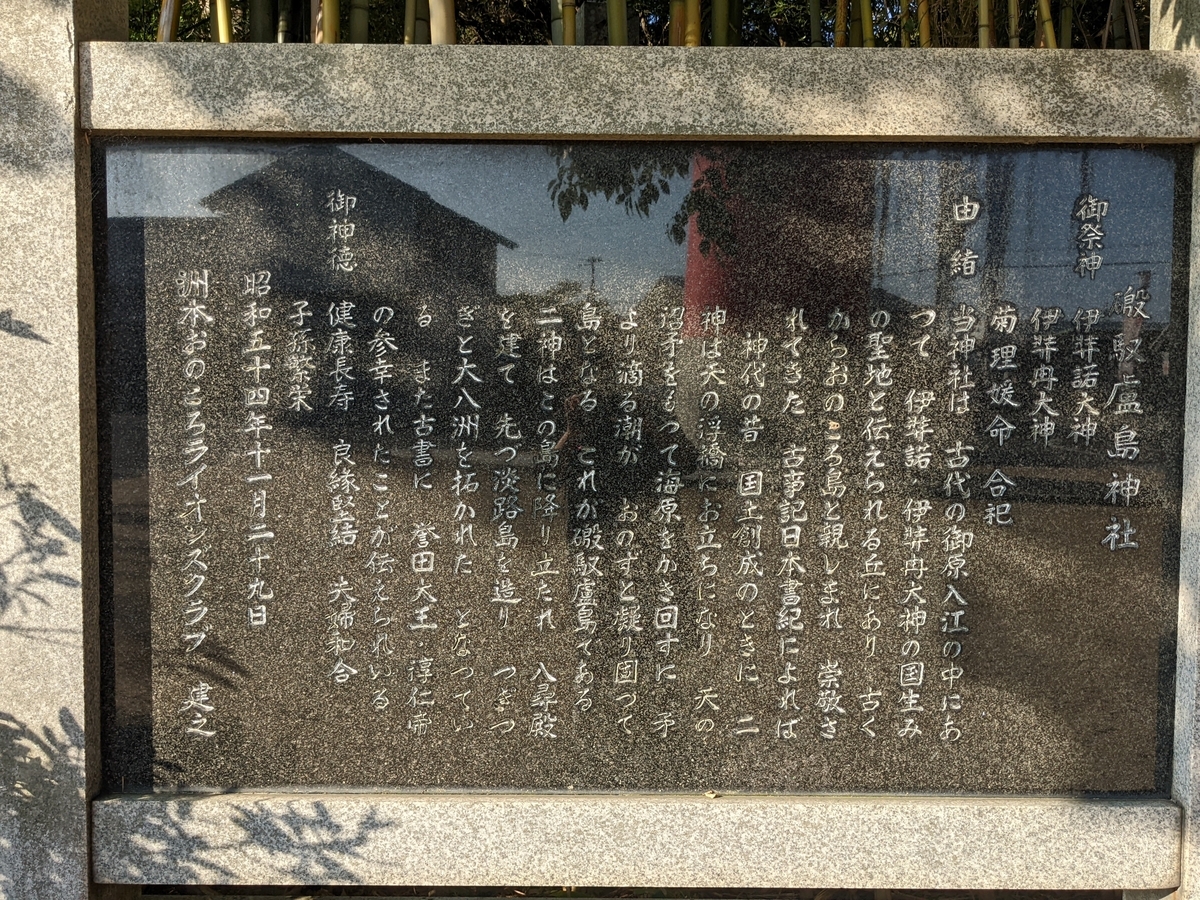 磤馭盧島神社
御祭神 伊弉諾大神
伊弉冉大神
菊理媛命 合祀
由緒 当神社は 古代の御原入江の中にあ
つて 伊弉諾・伊弉冉大神の国生み
の聖地と伝えられる丘にあり 古く
からおのころ島と親しまれ 崇敬さ
れてきた 古事記日本書紀によれば
神代の昔 国土創成のときに 二
神は天の浮橋にお立ちになり 天の
沼矛をもつて海原をかき回すに 矛
より滴る潮が おのずと凝り固つて
島となる これが磤馭盧島である
二神はこの島に降り立たれ 八尋殿
を建て 先づ淡路島を造り つぎつ
ぎと大八洲を拓かれた となつてい
る また古書に 誉田天王・淳仁帝
の参幸されたことが伝えられいる
御神徳 健康長寿 良縁堅結 夫婦和合
子孫繁栄
昭和五十四年十一月二十九日
洲本おのころライオンズクラブ 建之